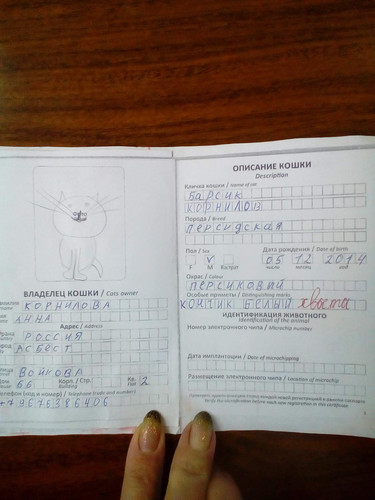 ВЛАДЕЛЕЦ КОШКИ / Cats owner
КОРНИЛОВА
АННА
Адрес / Address
РОССИЯ
АСБЕСТ
ВОЙКОВА
66 Корп / Стр. Building Кв. 2
Телефон (код и номер) / Telephone (code and number)
+79676386406
ОПИСАНИЕ КОШКИ
Description
Кличка кошки / Name of cat
БАРСИК
КОРНИЛОВ
Порода / Breed
ПЕРСИДСКАЯ
Пол / Sex Дата рождения / Date of birth
V 05 12 2014
F M Кастрат число месяц год
Окрас / Colour
ПЕРСИКОВЫЙ
Особые приметы / Distinguishing marks
КОНЧИК БЕЛЫЙ хвоста
ИДЕНТИФИКАЦИЯ ЖИВОТНОГО
Identification of the animal
Номер электронного чипа / Microchip number
Дата имплантации / Date of microchipping
Размещение электронного чипа / Location of microchip